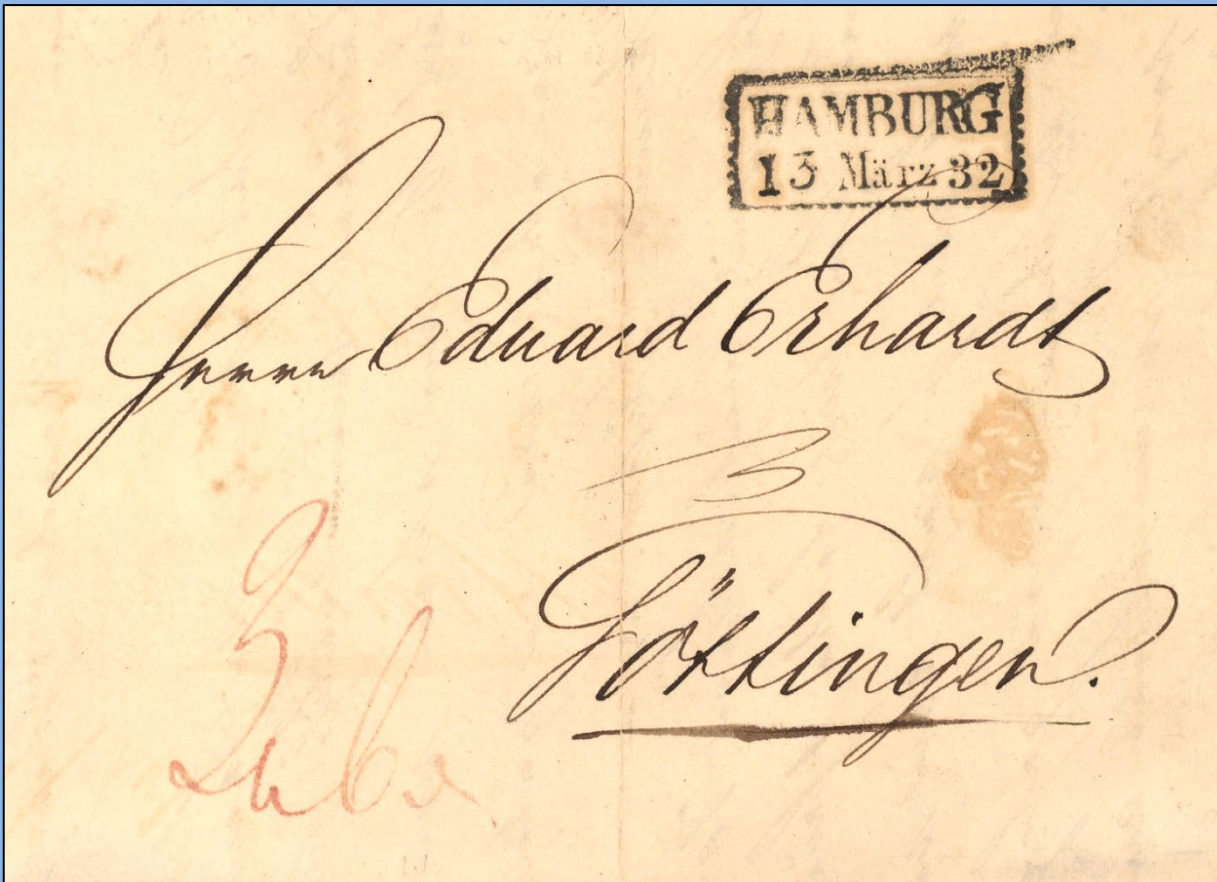 HAMBURG
13 März 32
Herrn Eduard Erhardt
Göttingen.